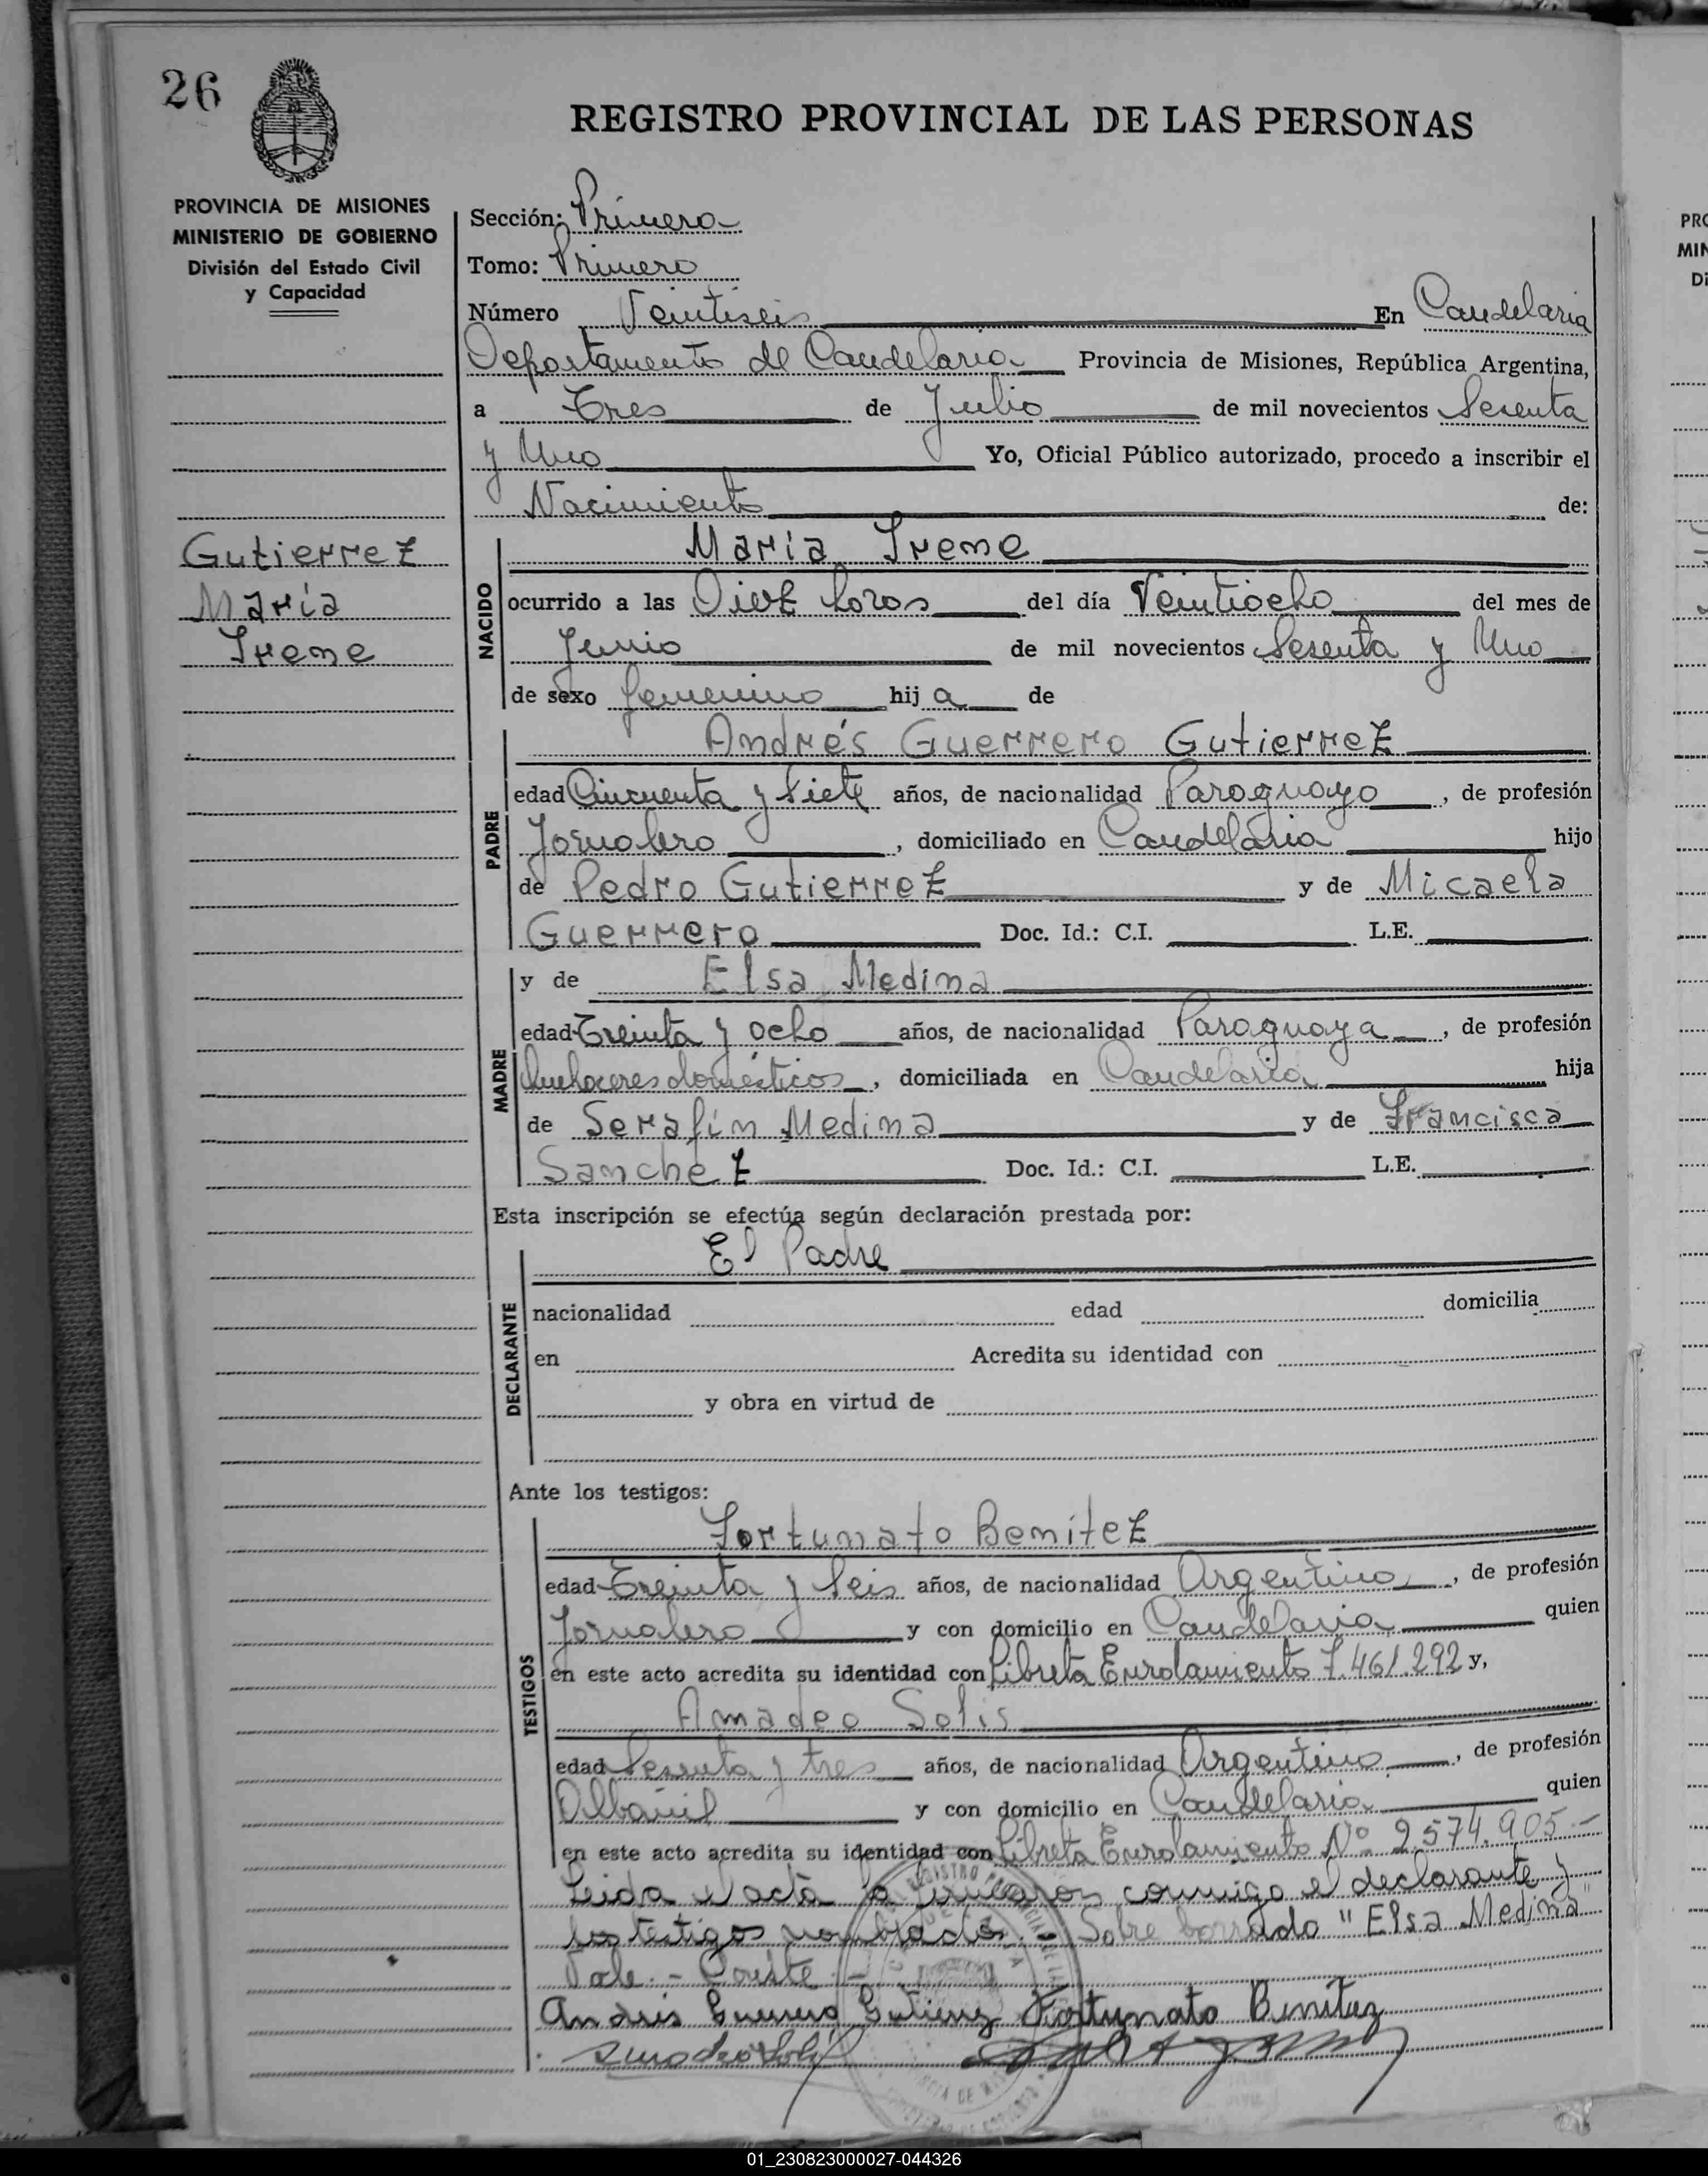 26
REGISTRO PROVINCIAL DE LAS PERSONAS
PROVINCIA DE MISIONES
MINISTERIO DE GOBIERNO
División del Estado Civil
y Capacidad
Sección: Primera
Tomo: Primero
Número Veintiseis En Candelaria
Departamento de Candelaria Provincia de Misiones, República Argentina,
a Tres de Julio de mil novecientos Sesenta
y Uno Yo, Oficial Público autorizado, procedo a inscribir el
Nacimiento de:
Gutierrez
María
Irene
NACIDO
María Irene
ocurrido a las Diez horas del día Veintiocho del mes de
Junio de mil novecientos Sesenta y Uno
de sexo femenino hija de
PADRE
Andrés Guerrero Gutierrez
edad Cincuenta y Siete años, de nacionalidad Paraguayo, de profesión
Jornalero, domiciliado en Candelaria hijo
de Pedro Gutierrez y de Micaela
Guerrero Doc. Id.: C.I. L.E.
MADRE
y de Elsa Medina
edad Treinta y ocho años, de nacionalidad Paraguaya, de profesión
Quehaceres domésticos, domiciliada en Candelaria hija
de Serafín Medina y de Francisca
Sanchez Doc. Id.: C.I. L.E.
Esta inscripción se efectúa según declaración prestada por:
DECLARANTE
El Padre
nacionalidad edad domicilia
en Acredita su identidad con
y obra en virtud de
Ante los testigos:
TESTIGOS
Fortunato Benítez
edad Treinta y Seis años, de nacionalidad Argentino, de profesión
Jornalero y con domicilio en Candelaria quien
en este acto acredita su identidad con Libreta Enrolamiento 7.461.292 y,
Amadeo Solis
edad Sesenta y tres años, de nacionalidad Argentino, de profesión
Albañil y con domicilio en Candelaria quien
en este acto acredita su identidad con Libreta Enrolamiento Nº 2.574.905.-
Leida el acta la firmaron conmigo el declarante y
los testigos nombrados.- Sobre borrado "Elsa Medina"
Vale.- Conste.-
Andrés Guerrero Gutierrez Fortunato Benítez
Amadeo Solis
PRO
MIN
Di
01_230823000027-044326